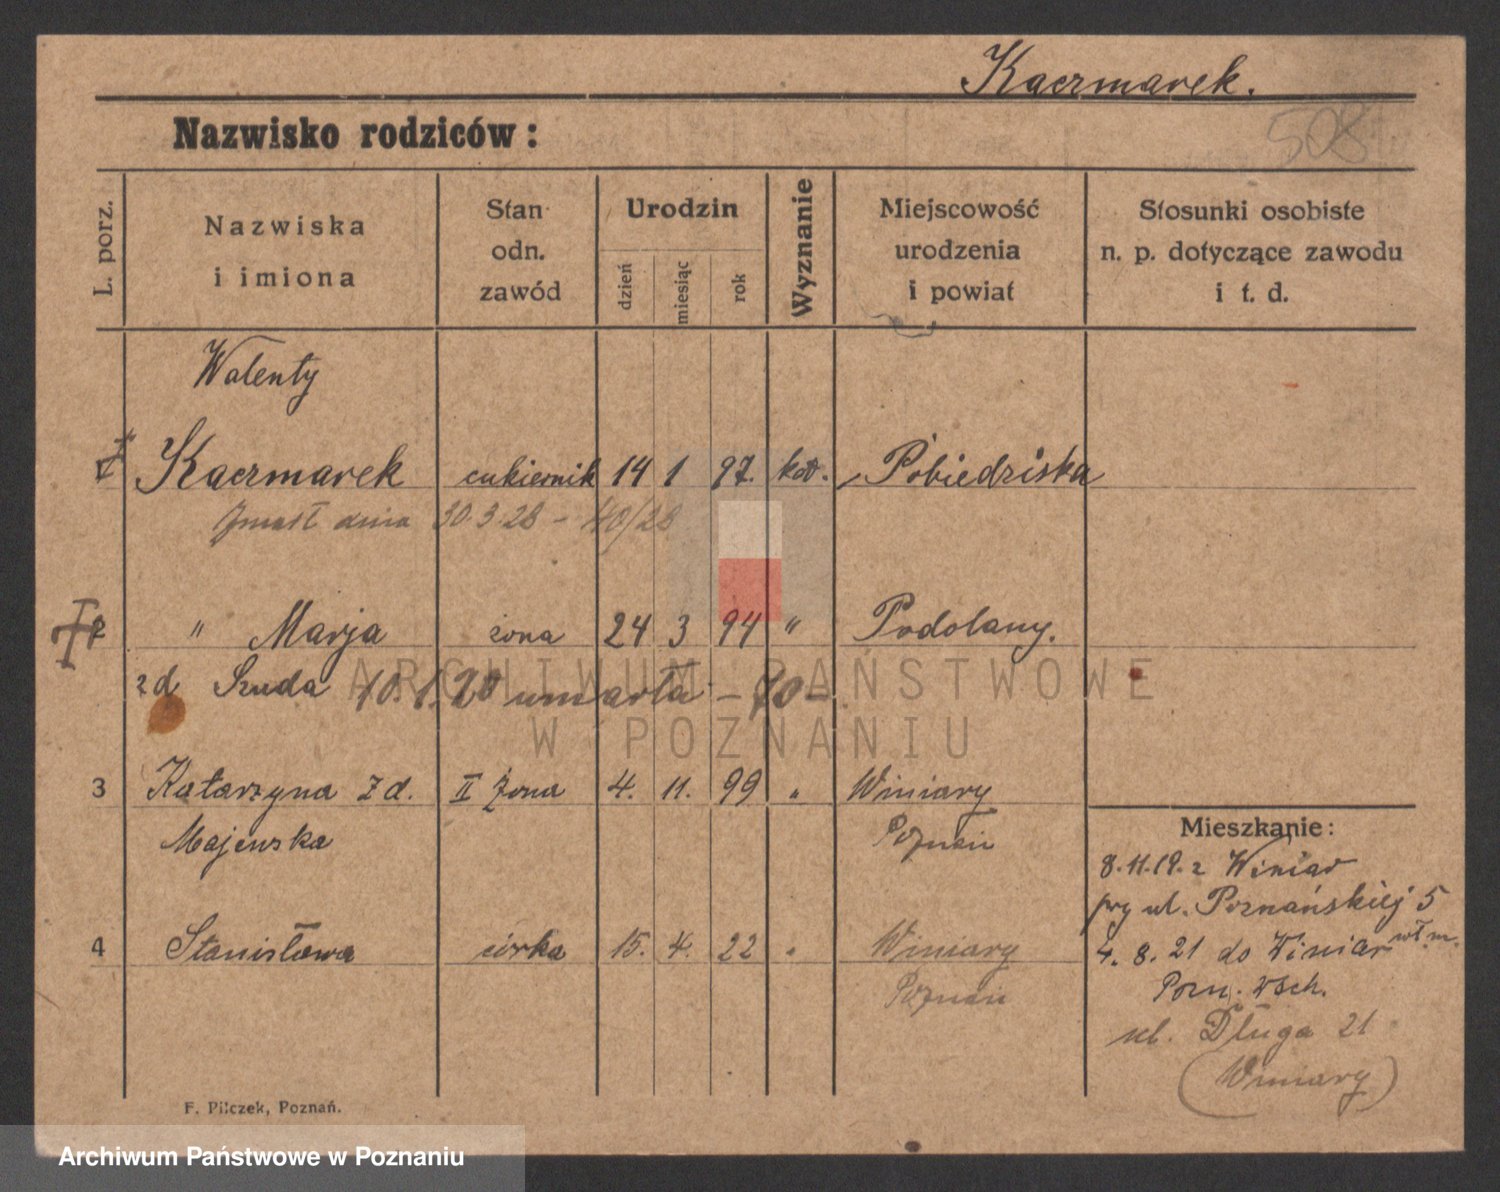 Kaczmarek.
508
Nazwisko rodziców:
L. porz.
Nazwiska
i imiona
Stan
odn.
zawód
Urodzin
dzień
miesiąc
rok
Wyznanie
Miejscowość
urodzenia
i powiat
Stosunki osobiste
n. p. dotyczące zawodu
i t. d.
Walenty
Kaczmarek cukiernik 14 1 97. kat. Pobiedziska
Zmarł dnia 30.3.28 - 40/28
2 " Marja żona 24 3 94 " Podolany.
zd Szuda 10.1.20 umarła - 70 -
ARCHIWUM PAŃSTWOWE
W POZNANIU
3 Katarzyna zd. II żona 4. 11. 99 " Winiary
Majewska Poznań
4 Stanisława córka 15. 4. 22 " Winiary
Poznań
Mieszkanie:
8.11.19. z Winiar
przy ul. Poznańskiej 5
4. 8. 21 do Winiar
Pozn. wsch.
ul. Długa 21
(Winiary)
F. Pilczek, Poznań.
Archiwum Państwowe w Poznaniu